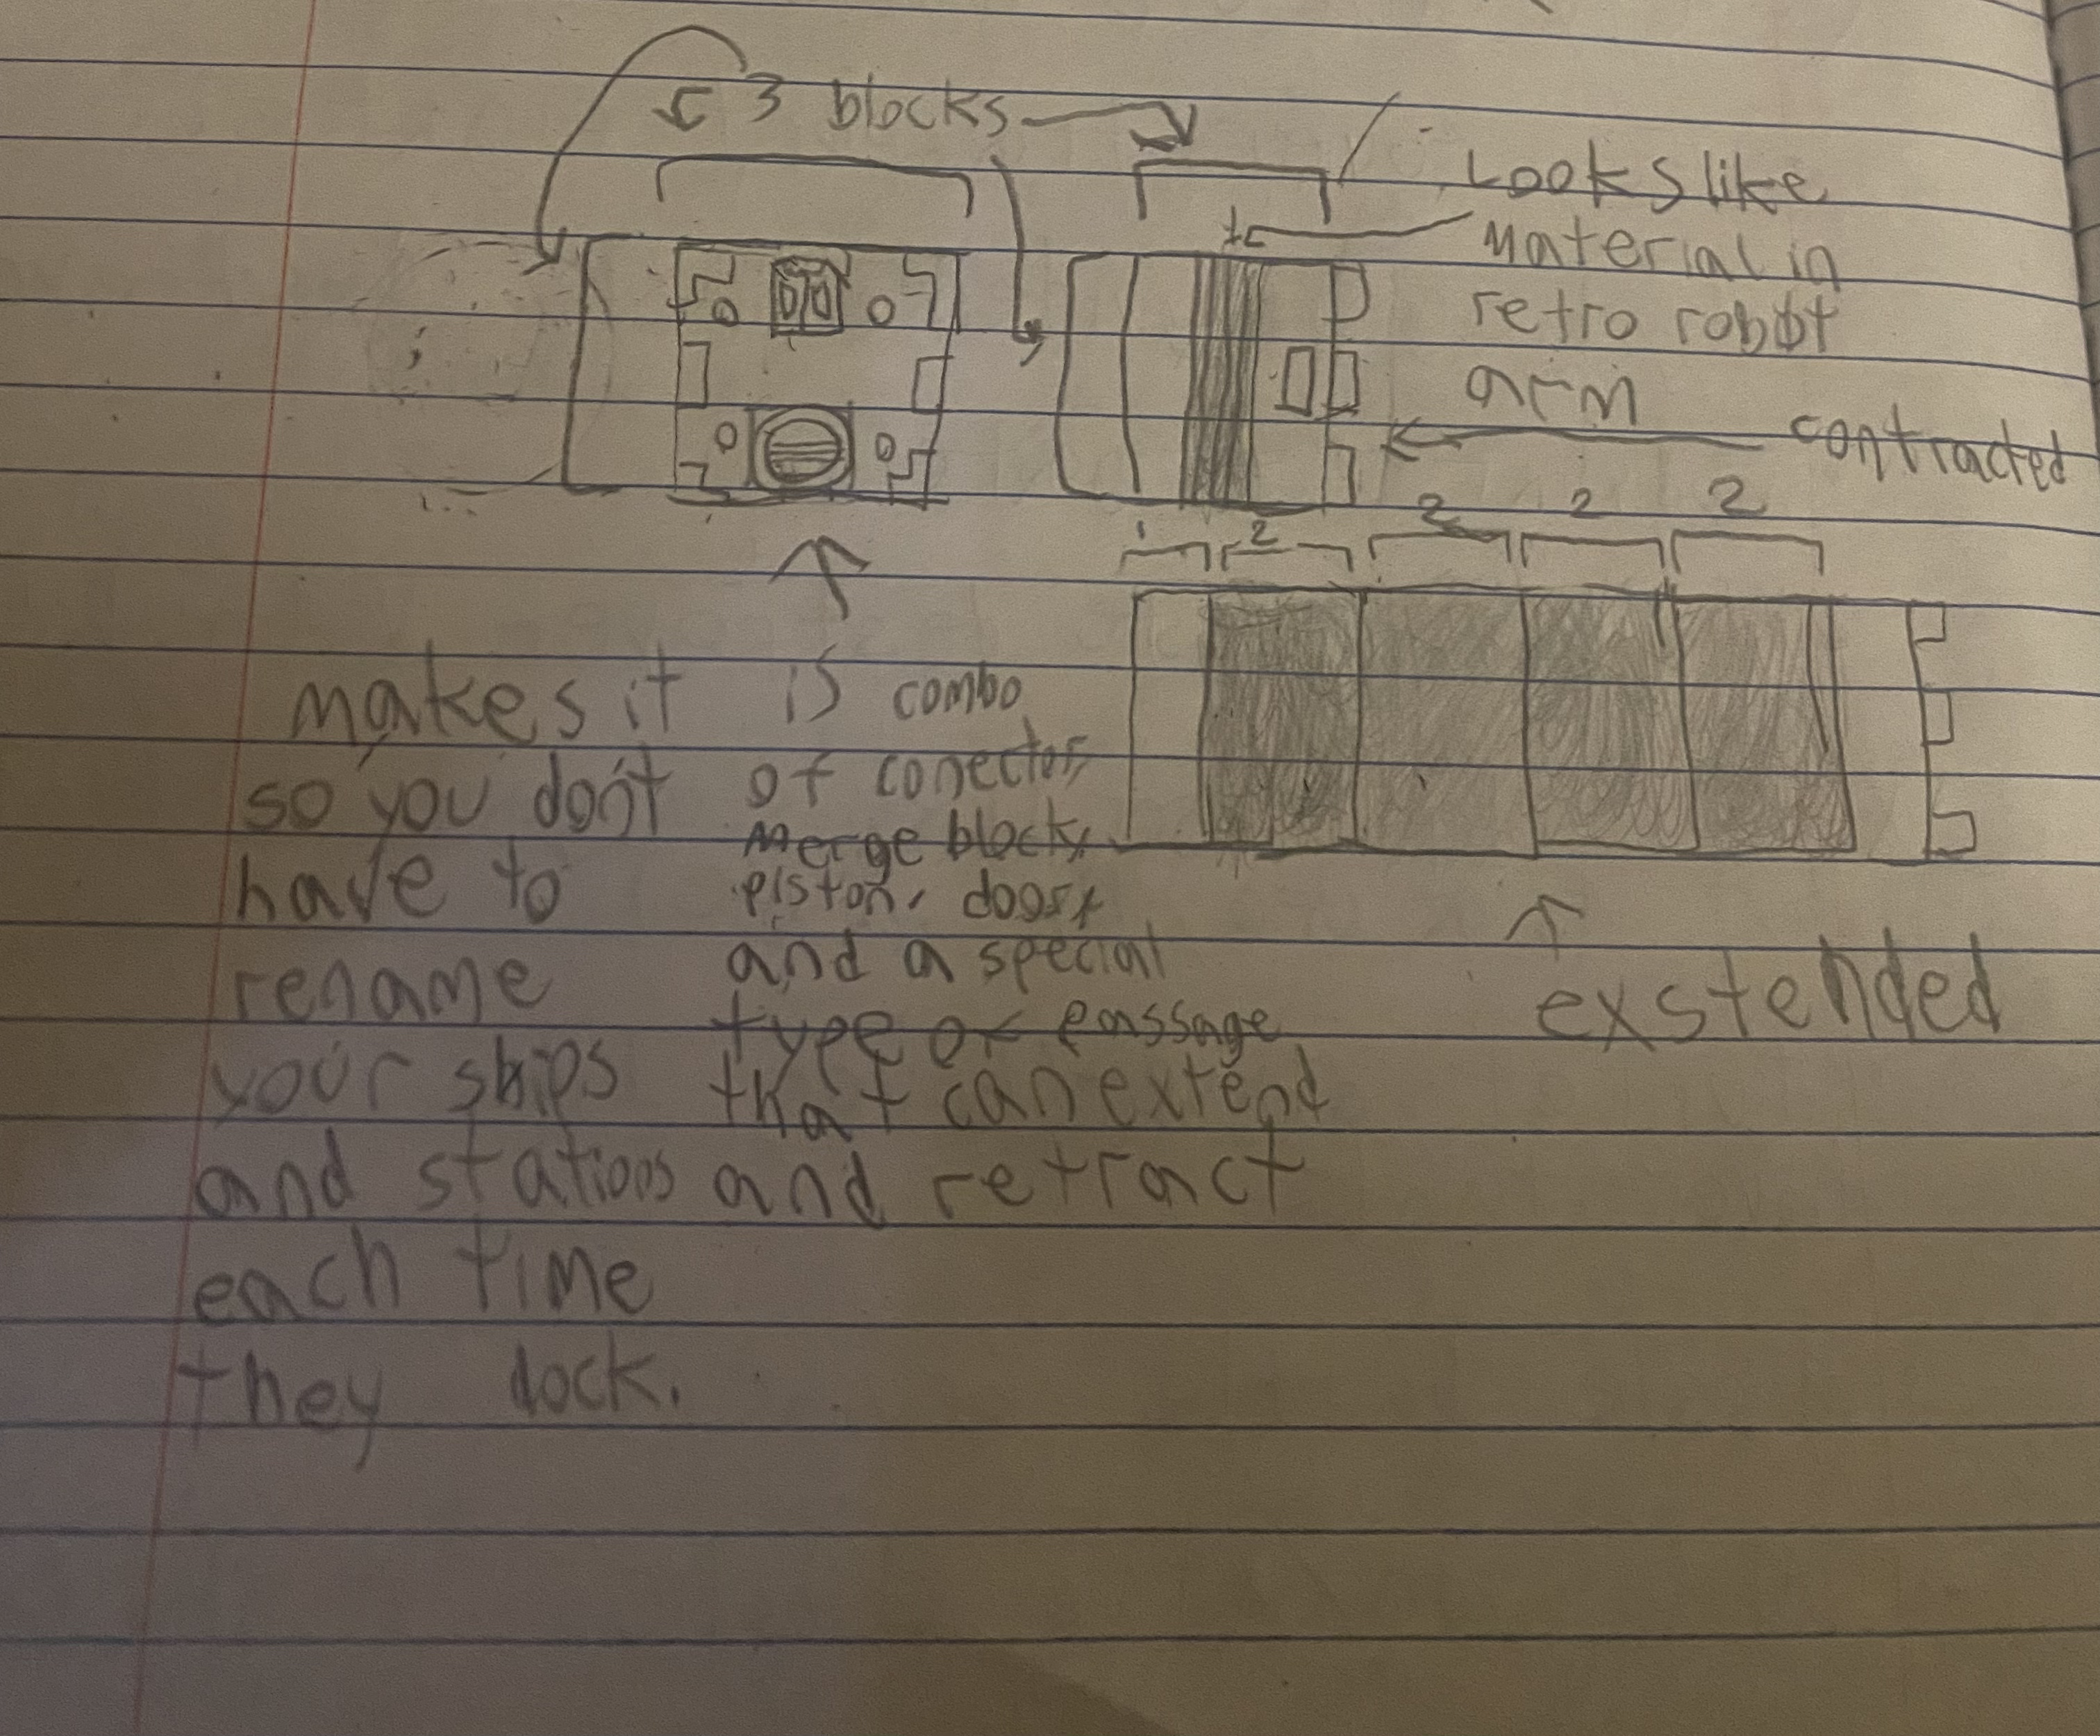 3 blocks
Looks like
material in
retro robot
arm
contracted
1 2 2 2 2
exstended
makes it
so you don't
have to
rename
your ships
and stations
each time
they dock.
is combo
of conector,
merge block,
piston, door,
and a special
type of passage
that can extend
and retract